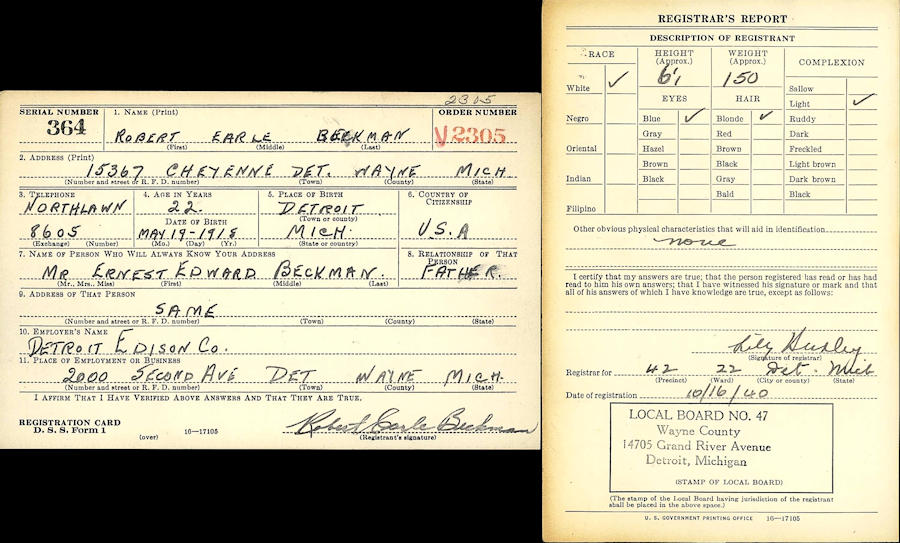 2305
SERIAL NUMBER 1. NAME (Print) ORDER NUMBER
364 ROBERT EARLE BECKMAN V2305
(First) (Middle) (Last)
2. ADDRESS (Print)
15367 CHEYENNE DET. WAYNE MICH
(Number and street or R. F. D. number) (Town) (County) (State)
3. TELEPHONE 4. AGE IN YEARS 5. PLACE OF BIRTH 6. COUNTRY OF CITIZENSHIP
NORTHLAWN 22. DETROIT
(Town or county)
DATE OF BIRTH
8605 MAY-19-1918 MICH. U.S.A
(Exchange) (Number) (Mo.) (Day) (Yr.) (State or country)
7. NAME OF PERSON WHO WILL ALWAYS KNOW YOUR ADDRESS 8. RELATIONSHIP OF THAT PERSON
MR ERNEST EDWARD BECKMAN. FATHER.
(Mr., Mrs., Miss) (First) (Middle) (Last)
9. ADDRESS OF THAT PERSON
SAME
(Number and street or R. F. D. number) (Town) (County) (State)
10. EMPLOYER'S NAME
DETROIT EDISON CO.
11. PLACE OF EMPLOYMENT OR BUSINESS
2000 SECOND AVE DET WAYNE MICH.
(Number and street or R. F. D. number) (Town) (County) (State)
I AFFIRM THAT I HAVE VERIFIED ABOVE ANSWERS AND THAT THEY ARE TRUE.
REGISTRATION CARD
D. S. S. Form 1 (over) 16—17105 Robert Earle Beckman
(Registrant's signature)
REGISTRAR'S REPORT
DESCRIPTION OF REGISTRANT
RACE HEIGHT (Approx.) WEIGHT (Approx.) COMPLEXION
6'1 150
White ✓ Sallow
EYES HAIR Light ✓
Negro Blue ✓ Blonde ✓ Ruddy
Gray Red Dark
Oriental Hazel Brown Freckled
Brown Black Light brown
Indian Black Gray Dark brown
Bald Black
Filipino
Other obvious physical characteristics that will aid in identification
none
I certify that my answers are true; that the person registered has read or has had
read to him his own answers; that I have witnessed his signature or mark and that
all of his answers of which I have knowledge are true, except as follows:
Lily
(Signature of registrar)
Registrar for 42 22 Det. Mich
(Precinct) (Ward) (City or county) (State)
Date of registration 10/16/40
LOCAL BOARD NO. 47
Wayne County
14705 Grand River Avenue
Detroit, Michigan
(STAMP OF LOCAL BOARD)
(The stamp of the Local Board having jurisdiction of the registrant
shall be placed in the above space.)
U. S. GOVERNMENT PRINTING OFFICE 16—17105